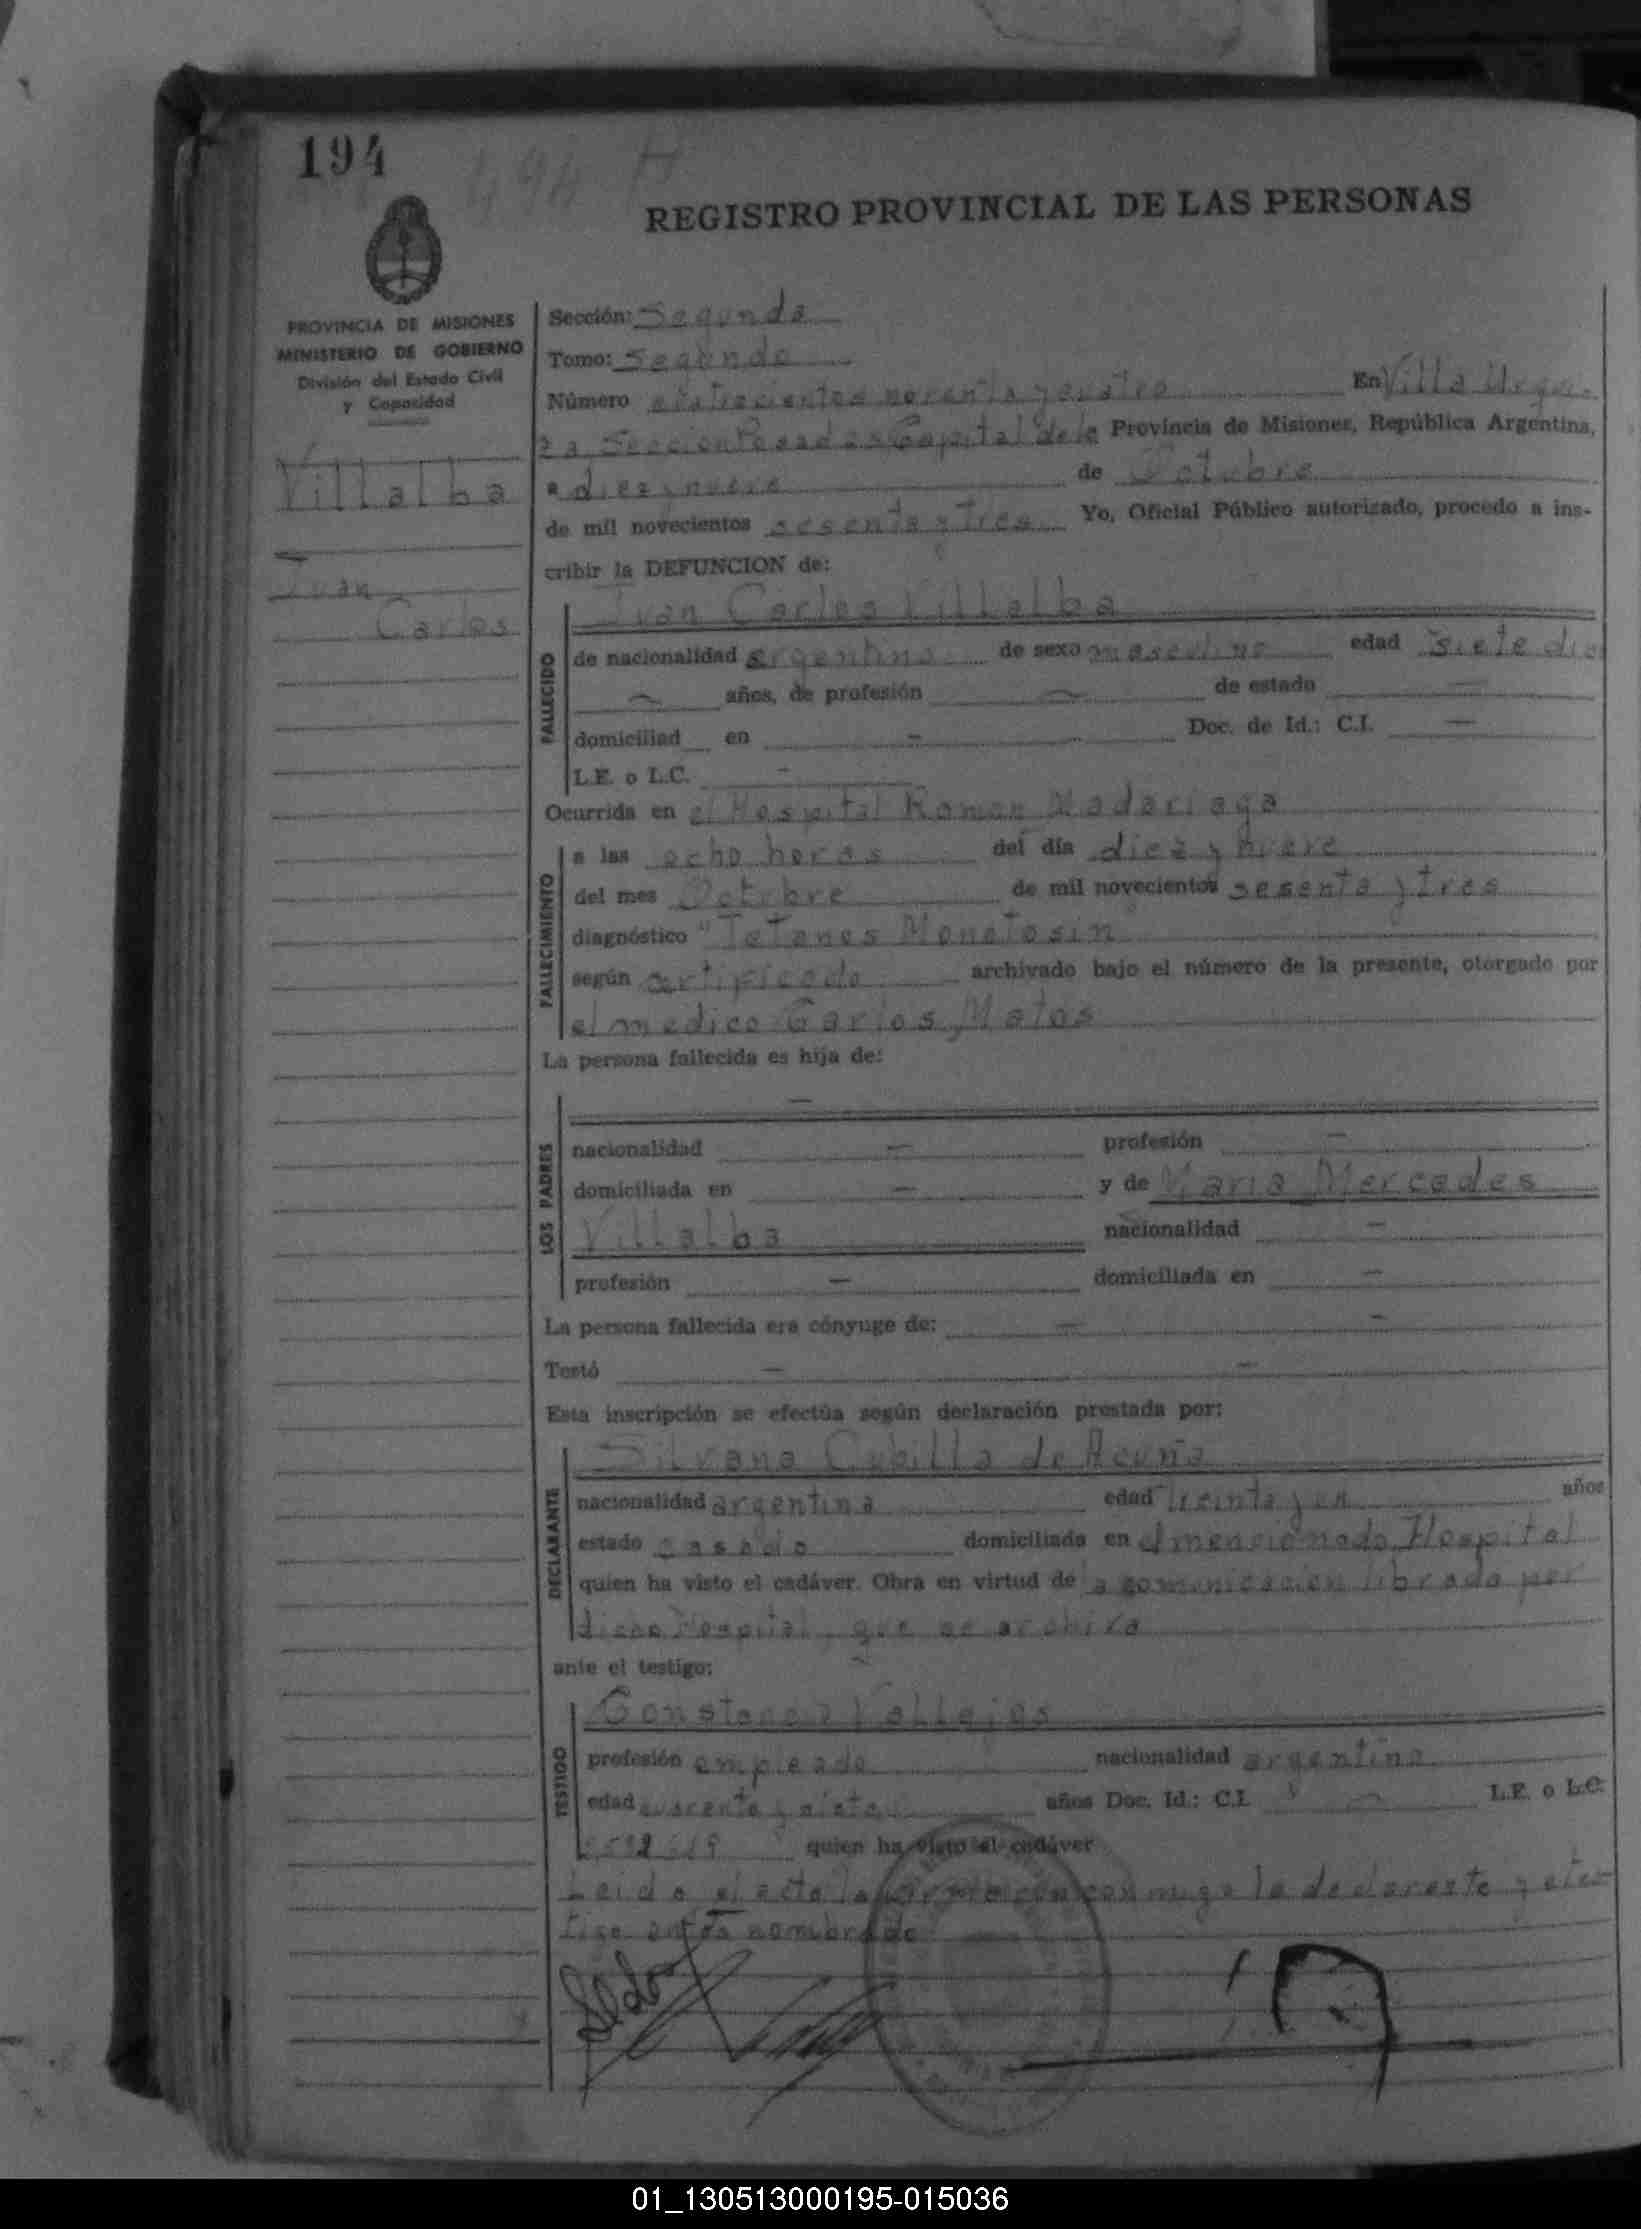 194
494 H
REGISTRO PROVINCIAL DE LAS PERSONAS
PROVINCIA DE MISIONES
MINISTERIO DE GOBIERNO
División del Estado Civil
y Capacidad
Villalba
Juan
Carlos
Sección: Segunda
Tomo: Segundo
Número cuatrocientos noventa y cuatro En Villa Urqui-
za Seccion Posadas Capital de la Provincia de Misiones, República Argentina,
a diez y nueve de Octubre
de mil novecientos sesenta y tres Yo, Oficial Público autorizado, procedo a ins-
cribir la DEFUNCION de:
FALLECIDO
Juan Carlos Villalba
de nacionalidad argentina de sexo masculino edad siete dias
— años, de profesión — de estado —
domiciliad en — Doc. de Id.: C.I. —
L.E. o L.C. —
Ocurrida en el Hospital Ramon Madariaga
FALLECIMIENTO
a las ocho horas del día diez y nueve
del mes Octubre de mil novecientos sesenta y tres
diagnóstico "Tetanos
según certificado archivado bajo el número de la presente, otorgado por
el medico Carlos Matos
La persona fallecida es hija de:
LOS PADRES
—
nacionalidad — profesión —
domiciliada en — y de Maria Mercedes
Villalba nacionalidad —
profesión — domiciliada en —
La persona fallecida era cónyuge de: — —
Testó — —
Esta inscripción se efectúa según declaración prestada por:
DECLARANTE
Silvana Cubilla de Acuña
nacionalidad argentina edad treinta y un años
estado casada domiciliada en el mencionado Hospital
quien ha visto el cadáver. Obra en virtud de la comunicacion librada por
dicho Hospital, que se archiva
ante el testigo:
TESTIGO
Vallejos
profesión empleado nacionalidad argentina
edad cuarenta y siete años Doc. Id.: C.I. — L.E. o L.C.
quien ha visto el cadáver
Leida el acta la conmigo la declarante y el tes-
tigo antes nombrado
01_130513000195-015036